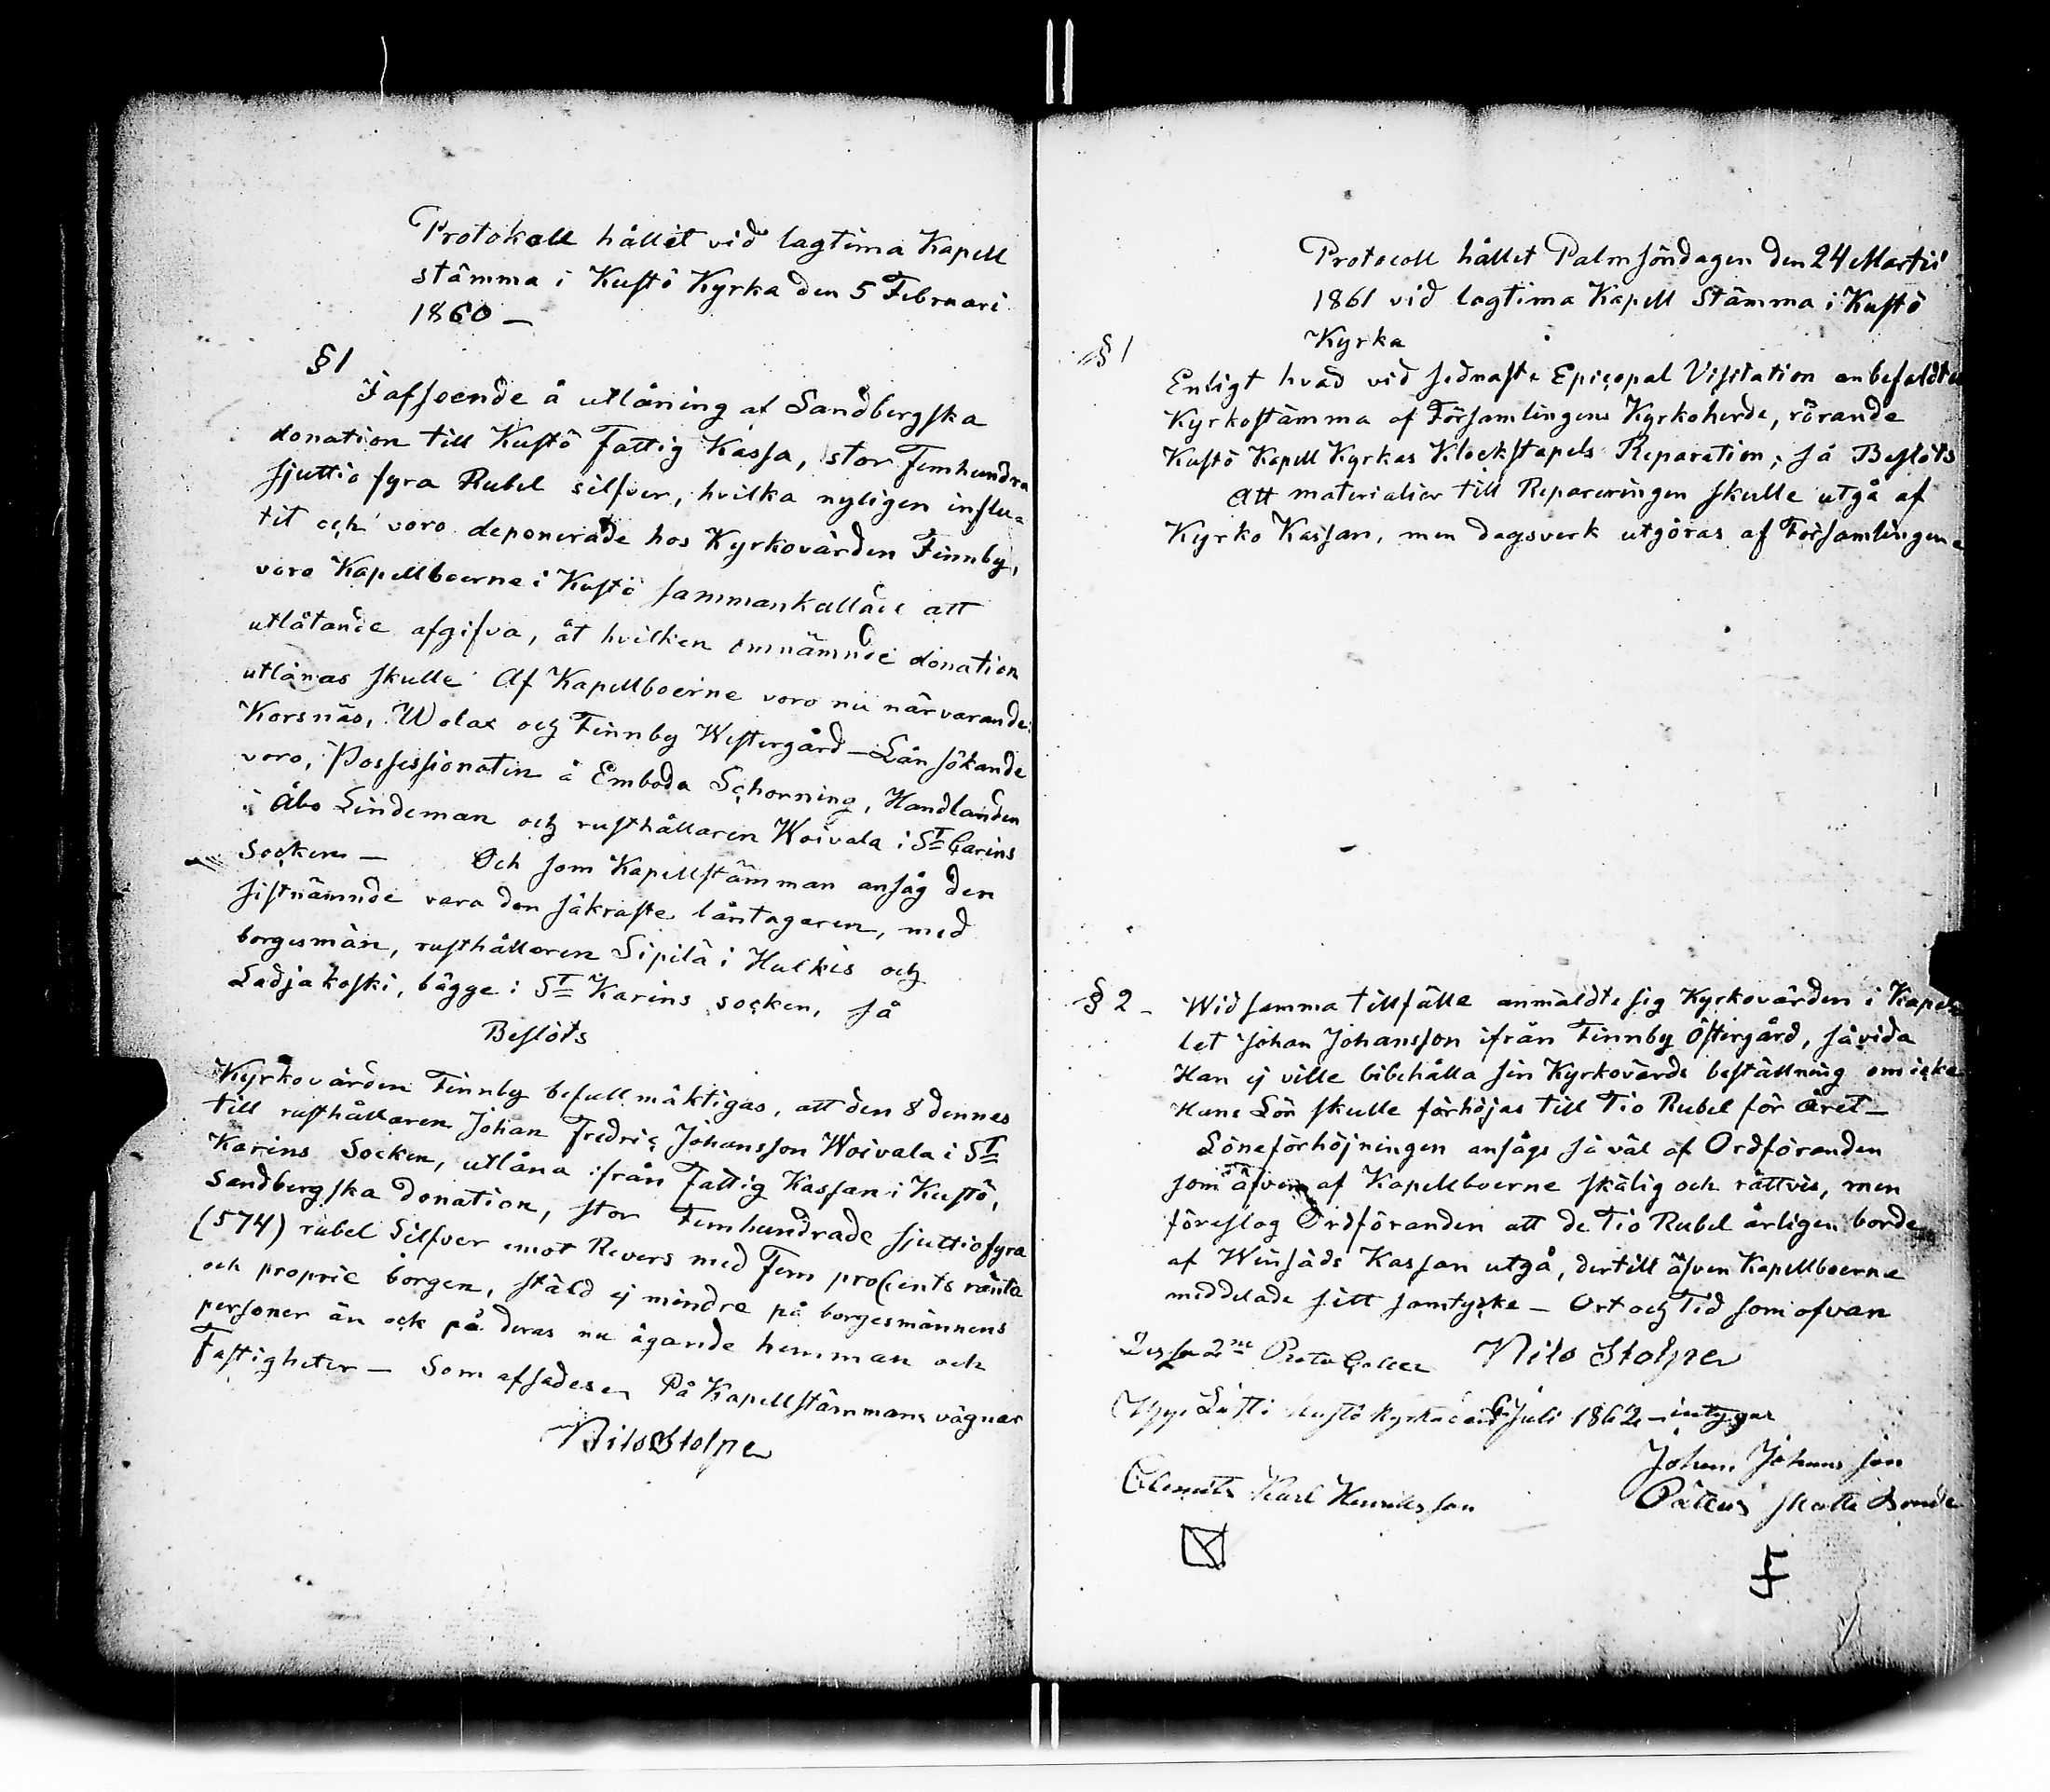 Protokoll hållit vid lagtima Kapell
stämma i Kustö Kyrka den 5 Februari
1860 —
§ 1
I afseende å utlåning af Sandbergska
donation till Kustö Fattig Kassa, stor Femhundra
sjuttio fyra Rubel silfver, hvilka nyligen influ=
tit och voro deponerade hos Kyrkovärden Finnby,
voro Kapellboerne i Kustö sammankallade att
utlåtande afgifva, åt hvilken omnämnde donation
utlånas skulle Af Kapellboerne voro nu närvarande:
Korsnäs, Wolax och Finnby Westergård — Lån sökande
voro, Possessionaten å Emboda Schorning, Handlanden
i Åbo Lindeman och rusthållaren Woivala i St Carins
Socken — Och som Kapellstämman ansåg den
sistnämnde vara den säkraste låntagaren, med
borgesmän, rusthållaren Sipilä i Hulkis och
Ladjakoski, bägge i St Karins socken, så
Beslöts
Kyrkovärden Finnby befullmäktigas, att den 8 dennes
till rusthållaren Johan Fredric Johansson Woivala i St
Karins Socken, utlåna ifrån Fattig Kassan i Kustö,
Sandbergska donation, stor Femhundrade sjuttiofyra
(574) rubel Silfver emot Revers med Fem proCents ränta
och proprie borgen, stäld ej mindre på borgesmännens
personer än ock på deras nu ägande hemman och
Fastigheter — Som afsades På Kapellstämmans vägnar
Nils Stolpe
Protocoll hållet Palmsöndagen den 24 Martii
1861 vid lagtima Kapell Stämma i Kustö
Kyrka
§ 1
Enligt hvad vid sednaste Episcopal Visitation anbefaldtes
Kyrkostämma af Församlingens Kyrkoherde, rörande
Kustö Kapell Kyrkas Klockstapels Reparation; så Beslöts
Att materialier till Repareringen skulle utgå af
Kyrko Kassan, men dagsverk utgöras af Församlingene
§ 2 — Wid samma tillfälle anmäldte sig Kyrkovärden i Kapel
let Johan Johansson ifrån Finnby Östergård, såvida
Han ej ville bibehålla sin Kyrkovärds beställning om icke
Hans Lön skulle förhöjas till Tio Rubel för Året —
Löneförhöjningen ansågs så väl af Ordföranden
som äfven af Kapellboerne skälig och rättvis, men
föreslog Ordföranden att de Tio Rubel årligen borde
af Winsäds Kassan utgå, dertill äfven Kapellboerne
meddelade sitt samtycke — Ort och Tid som ofvan
Dessa 2ne Protocoller Nils Stolpe
Upp Lästi Kustö Kyrka den Juli 1862 — intygar
Johan Johansson
Karl Henriksson skatte Bonde